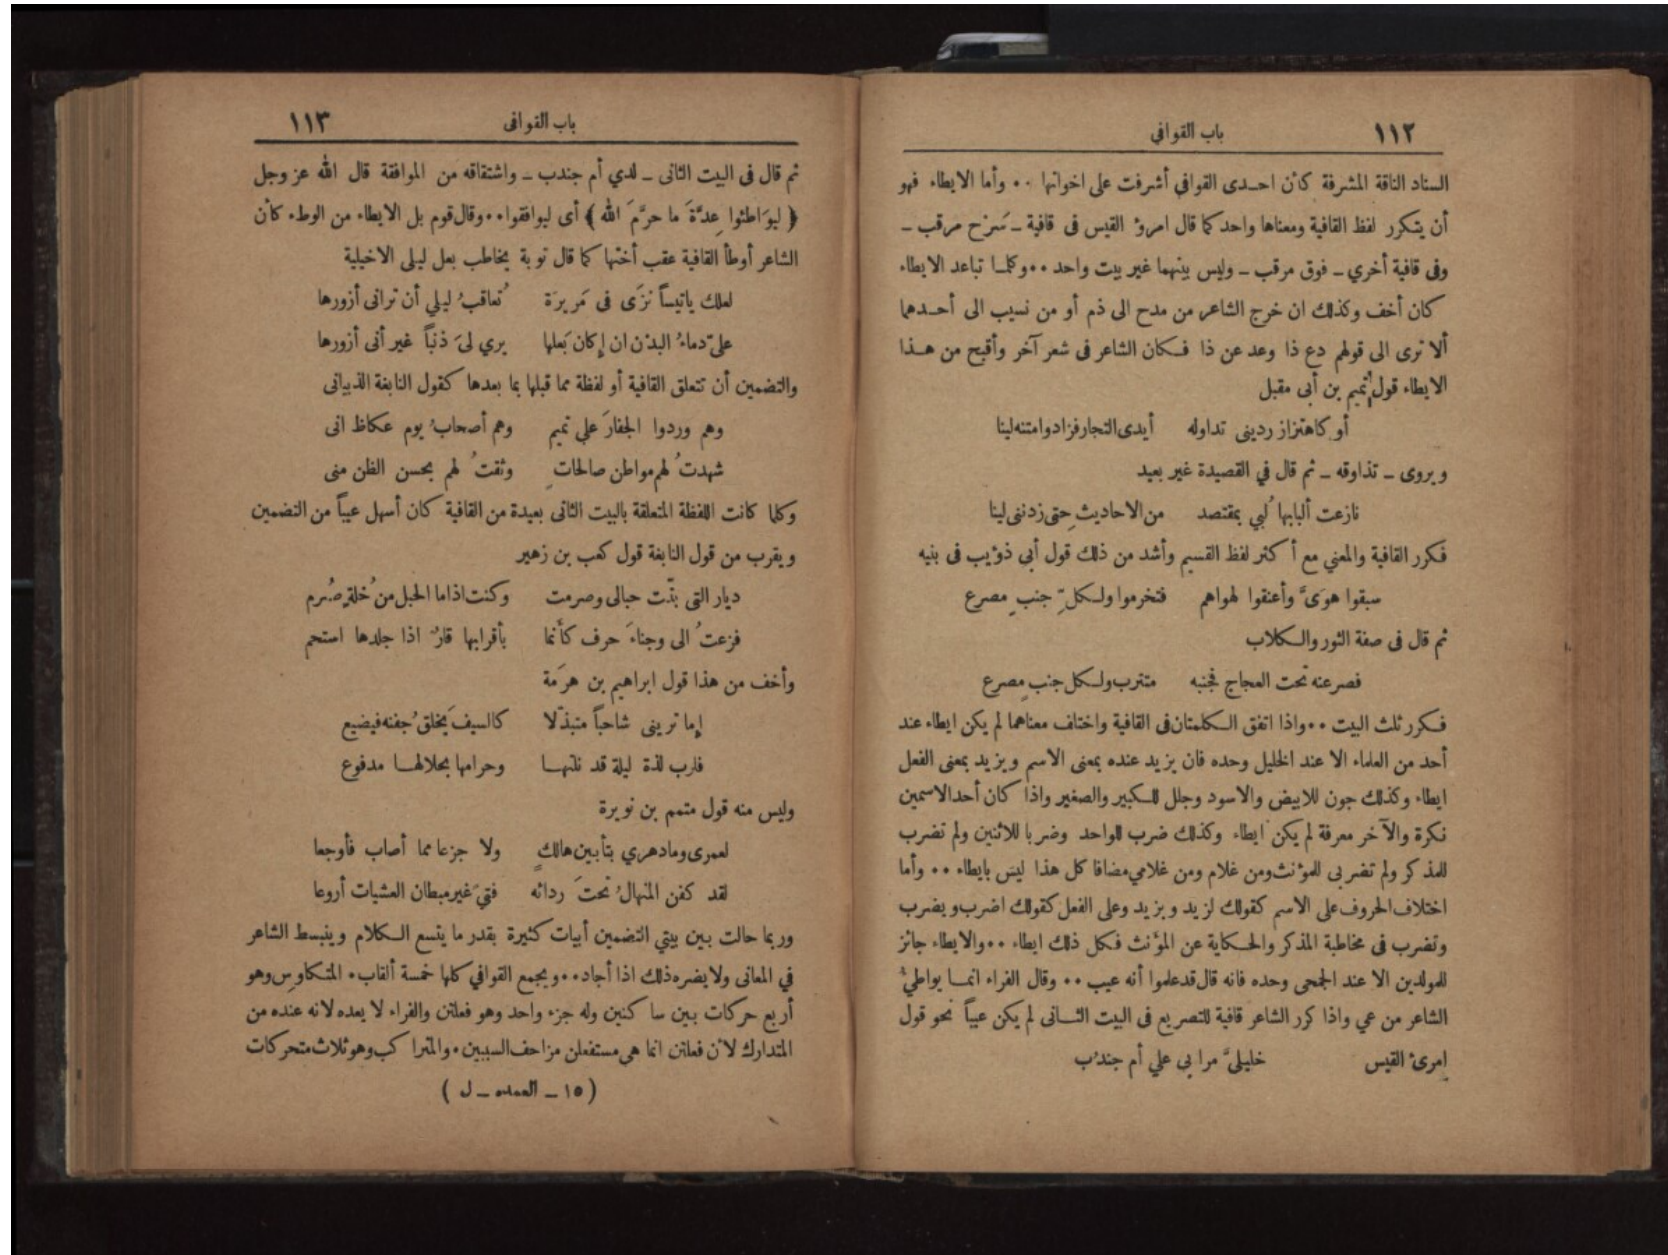 ١١٢
باب القوافي
السناد الناقة المشرفة كأن احدى القوافي أشرفت على اخواتها ٠٠ وأما الايطاء فهو
أن يتكرر لفظ القافية ومعناها واحد كما قال امرؤ القيس فى قافية ـ سَرْح مرقب ـ
وفى قافية أخري ـ فوق مرقب ـ وليس بينهما غير بيت واحد ٠٠ وكلما تباعد الايطاء
كان أخف وكذلك ان خرج الشاعر من مدح الى ذم أو من نسيب الى أحدهما
ألا ترى الى قولهم دع ذا وعد عن ذا فكان الشاعر فى شعر آخر وأقبح من هذا
الايطاء قول تميم بن أبى مقبل
أو كاهتزاز ردينى تداوله أيدى التجار فزادوا متنه لينا
ويروى ـ تذاوقه ـ ثم قال في القصيدة غير بعيد
نازعت ألبابها لُبي بمقتصد من الاحاديثِ حتى زدننى لينا
فكرر القافية والمعني مع أكثر لفظ القسيم وأشد من ذلك قول أبى ذؤيب فى بنيه
سبقوا هوَىَّ وأعنقوا لهواهم فتخرموا ولكلِّ جنبٍ مصرع
ثم قال فى صفة الثور والكلاب
فصرعنه تحت العجاج فجنبه متترب ولكل جنبٍ مصرع
فكرر ثلث البيت ٠٠ واذا اتفق الكلمتان فى القافية واختلف معناهما لم يكن ايطاء عند
أحد من العلماء الا عند الخليل وحده فان يزيد عنده بمعنى الاسم ويزيد بمعنى الفعل
ايطاء وكذلك جون للابيض والاسود وجلل للكبير والصغير واذا كان أحد الاسمين
نكرة والآخر معرفة لم يكن ايطاء وكذلك ضرب للواحد وضربا للاثنين ولم تضرب
للمذكر ولم تضربى للمؤنث ومن غلام ومن غلامي مضافا كل هذا ليس بايطاء ٠٠ وأما
اختلاف الحروف على الاسم كقولك لزيد وبزيد وعلى الفعل كقولك اضرب ويضرب
وتضرب فى مخاطبة المذكر والحكاية عن المؤنث فكل ذلك ايطاء ٠٠ والايطاء جائز
للمولدين الا عند الجمحى وحده فانه قال قد علموا أنه عيب ٠٠ وقال الفراء انما يواطئُ
الشاعر من عي واذا كرر الشاعر قافية للتصريع فى البيت الثانى لم يكن عيباً نحو قول
امرئ القيس خليلىَّ مرا بى علي أم جندُب
باب القوافى
١١٣
ثم قال فى البيت الثانى ـ لدي أم جندب ـ واشتقاقه من الموافقة قال الله عز وجل
﴿ ليوَاطئوا عِدَّةَ ما حرَّمَ الله ﴾ أى ليوافقوا ٠٠ وقال قوم بل الايطاء من الوطء كأن
الشاعر أوطأ القافية عقب أختها كما قال توبة يخاطب بعل ليلى الاخيلية
لعلك ياتيساً نزَى فى مَريرَة تُعاقبُ ليلي أن ترانى أزورها
علىّ دماءُ البدْن ان إكان بَعلها يري لىَ ذنباً غير أنى أزورها
والتضمين أن تتعلق القافية أو لفظة مما قبلها بما بعدها كقول النابغة الذبيانى
وهم وردوا الجفارَ علي تميم وهم أصحابُ يوم عكاظ انى
شهدتُ لهم مواطن صالحاتٍ وثقتُ لهم بحسن الظن منى
وكلما كانت اللفظة المتعلقة بالبيت الثانى بعيدة من القافية كان أسهل عيباً من التضمين
ويقرب من قول النابغة قول كعب بن زهير
ديار التى بتّت حبالى وصرمت وكنت اذا ما الحبل من خُلةٍ صُرم
فزعتُ الى وجناءَ حرف كأنما بأقرابها قارٌ اذا جلدها استحم
وأخف من هذا قول ابراهيم بن هرْمة
إما تريني شاحباً متبذّلا كالسيف يَخلق جُفنه فيضيع
فلرب لذة ليلة قد نلتها وحرامها بحلالها مدفوع
وليس منه قول متمم بن نويرة
لعمرى وما دهري بتأبين هالكٍ ولا جزعا مما أصاب فأوجعا
لقد كفن المنهالُ تحتَ ردائه فتىً غير مبطان العشيات أروعا
وربما حالت بين بيتي التضمين أبيات كثيرة بقدر ما يتسع الكلام وينبسط الشاعر
في المعانى ولا يضره ذلك اذا أجاد ٠٠ ويجمع القوافي كلها خمسة ألقاب ٠ المتكاوِس وهو
أربع حركات بين ساكنين وله جزء واحد وهو فعلتن والفراء لا يعده لانه عنده من
المتدارك لأن فعلتن انما هى مستفعلن مزاحف السببين ٠ والمتراكب وهو ثلاث متحركات
( ١٥ ـ العمده ـ ل )